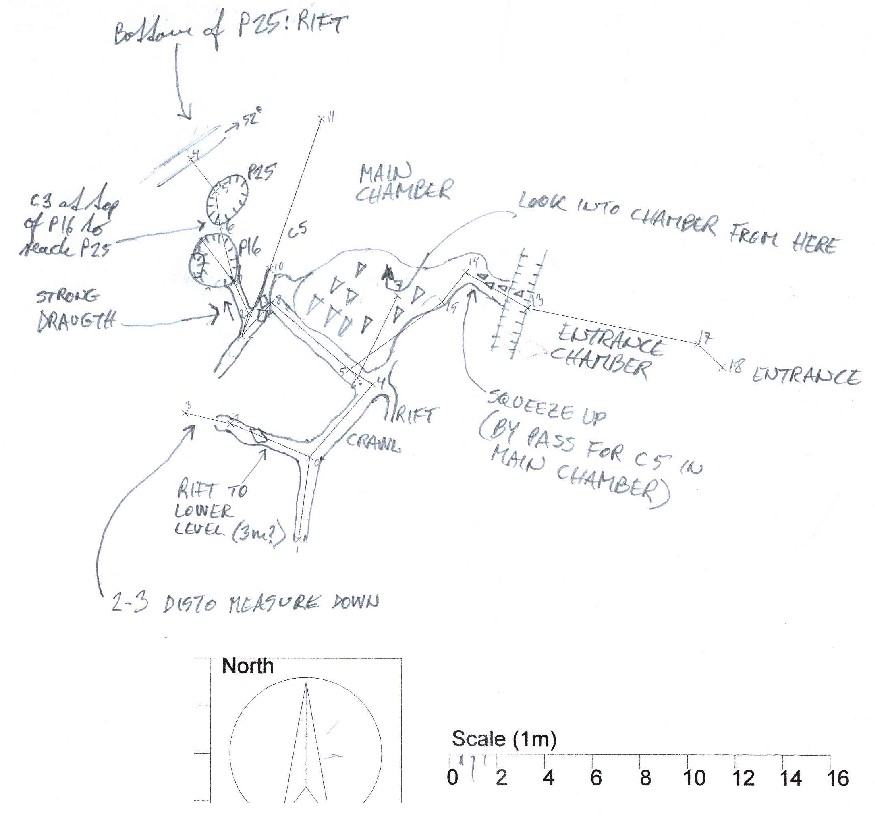 Bottom of P25: RIFT
52°
11
4
P25
MAIN
CHAMBER
C3 at top
of P16 to
reach P25
LOOK INTO CHAMBER FROM HERE
C5
P16
10
14
STRONG
DRAUGTH
13
15
17
ENTRANCE
CHAMBER
18 ENTRANCE
5
4
3
2
RIFT
CRAWL
SQUEEZE UP
(BY PASS FOR C5 IN
MAIN CHAMBER)
RIFT TO
LOWER
LEVEL (3m?)
2-3 DISTO MEASURE DOWN
North
Scale (1m)
0 2 4 6 8 10 12 14 16